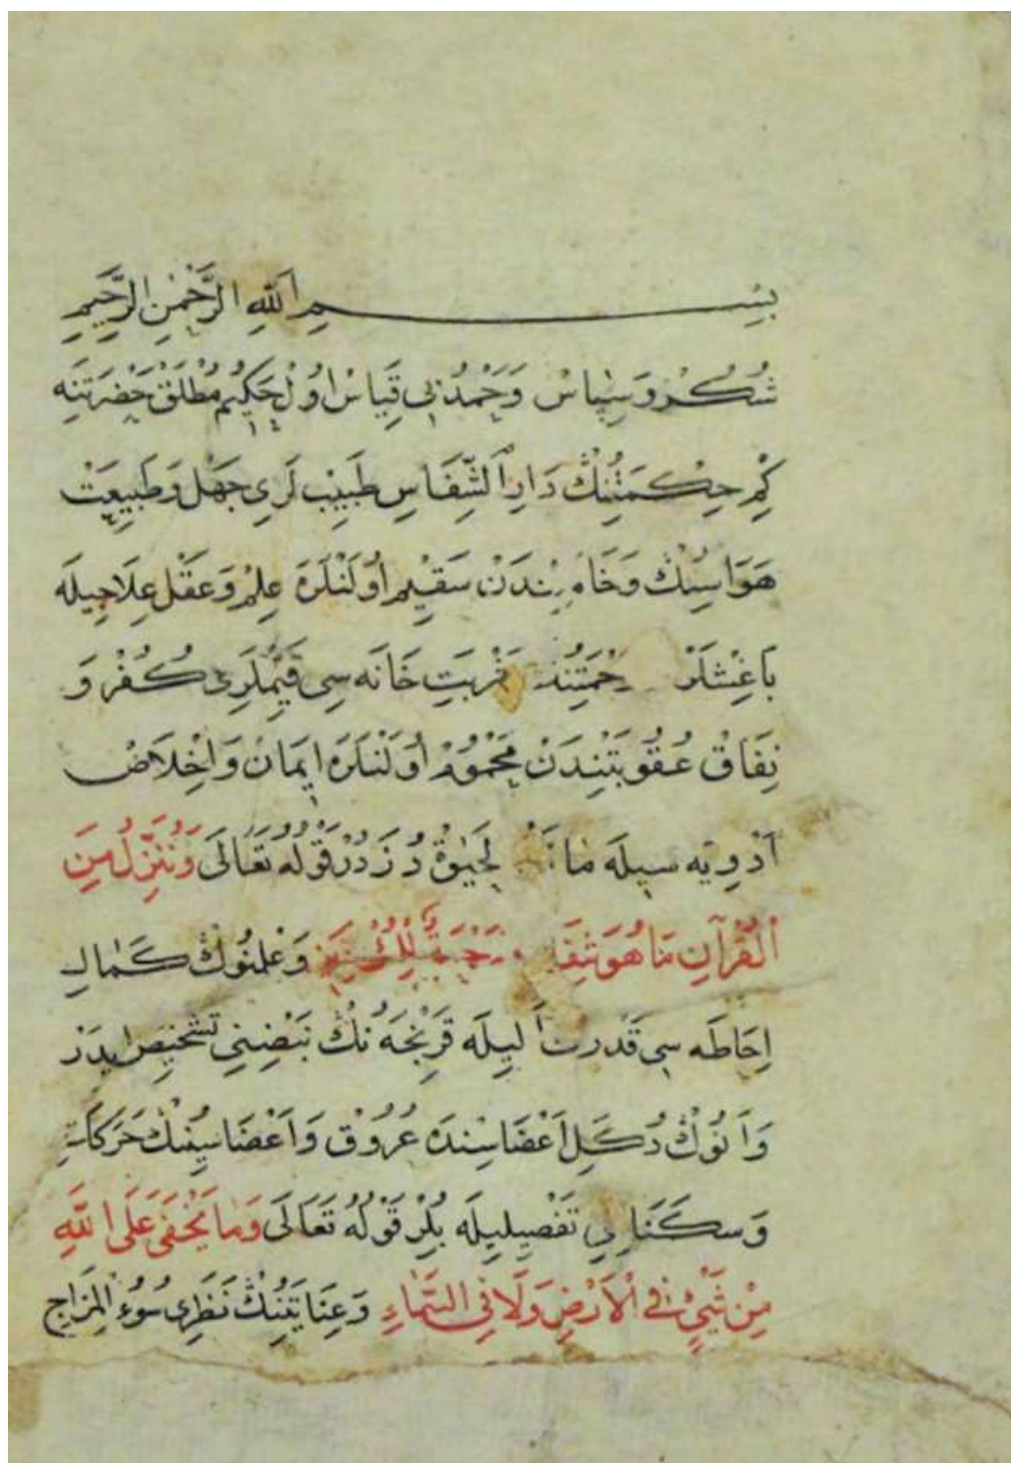 بِسْمِ اللّٰهِ الرَّحْمٰنِ الرَّحِيمِ
شُكُرْ وَسِپَاسْ وَحَمْدُ بِى قِيَاسْ اُولْ حَكِيمِ مُطْلَقْ حَضْرَتِنَه
كِمْ حِكْمَتِنُڭْ دَارِ الشِّفَاسِ طَبِيبْ لَرِى جَهْل وَطَبِيعَتْ
هَوَاسِنُڭْ وَخَامِتِنْدَنْ سَقِيمْ اُولَنْلَرَه عِلِمْ وَعَقْل عِلَاجِيلَه
بَاغِشْلَرْ شَرْبَتِ خَانَه سِى قَيِّمْلَرِى كُفْرْ وَ
نِفَاقْ عُقُوبَتِنْدَنْ مَحْمُومْ اُولَنْلَرَه اِيمَانْ وَاِخْلَاصْ
اَدْوِيَه سِيلَه لِحَيٰوةْ دُزَدُرْ قَوْلُهُ تَعَالَى وَنُنَزِّلُ مِنَ
الْقُرْآنِ مَا هُوَ شِفَاءٌ وَرَحْمَةٌ لِلْمُؤْمِنِينَ وَعِلْمُنُوڭْ كَمَالِ
اِحَاطَه سِى قَرِنْجَه نُڭْ نَبْضِنِى تَشْخِيصْ اِيدَرْ
وَاَنُوڭْ دُكَلِ اَعْضَاسِنْدَه عُرُوقْ وَاَعْضَاسِنُڭْ حَرَكَاتِ
وَسَكَنَاتِى تَفْصِيلِيلَه بِلُرْ قَوْلُهُ تَعَالَى وَمَا يَخْفَى عَلَى اللّٰهِ
مِنْ شَيْءٍ فِى الْاَرْضِ وَلَا فِى السَّمَاءِ وَعِنَايَتِنُڭْ نَظَرِى سُوءُ الْمِزَاجِ